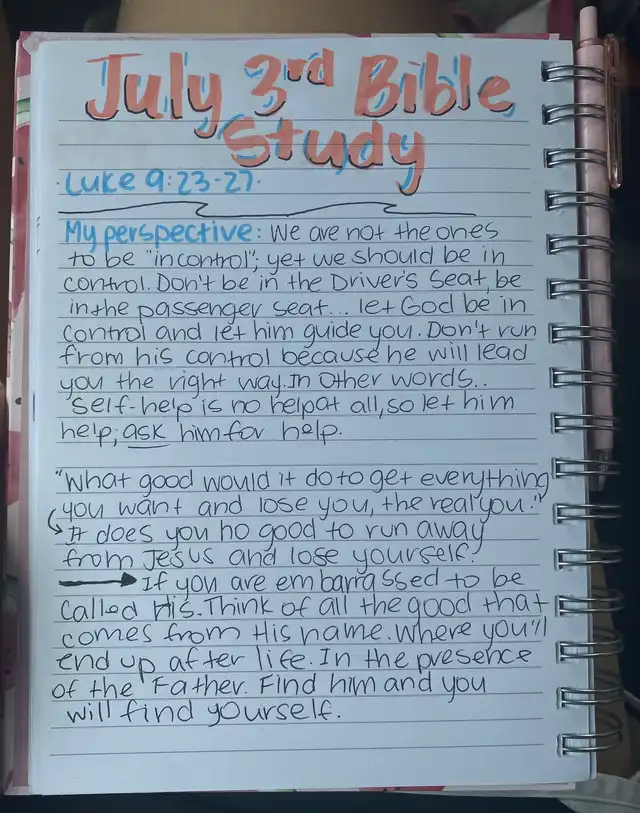 July 3rd Bible
Study
·Luke 9:23-27·
My perspective: We are not the ones
to be "in control", yet we should be in
control. Don't be in the Driver's Seat, be
in the passenger seat... let God be in
control and let him guide you. Don't run
from his control because he will lead
you the right way. In other words..
Self-help is no help at all, so let him
help; ask him for help.
"What good would it do to get everything
you want and lose you, the real you."
It does you no good to run away
from Jesus and lose yourself.
If you are embarrassed to be
Called His. Think of all the good that
comes from His name. Where you'll
end up after life. In the presence
of the Father. Find him and you
will find yourself.